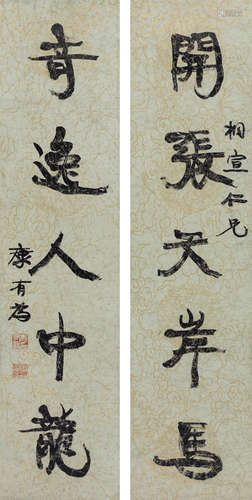 開張天岸馬
相宣仁兄
奇逸人中龍
康有為